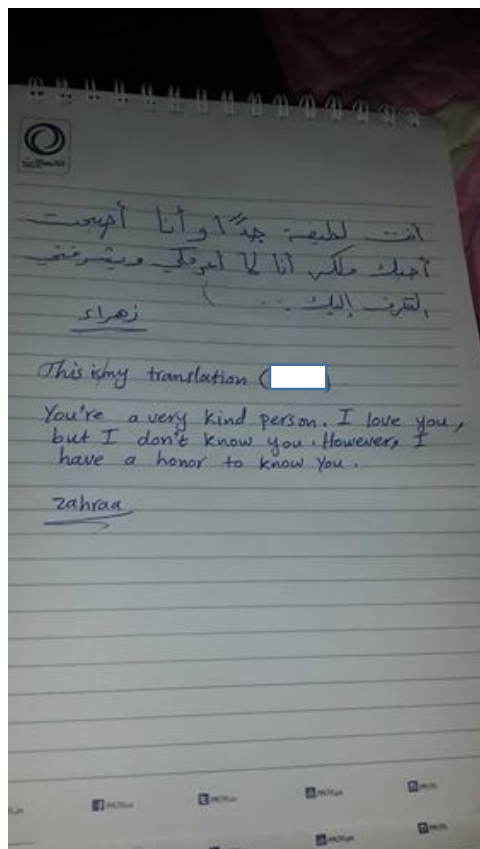 أنت لطيفة جدًا وأنا أصبحت
أحبك ولكن أنا لا أعرفكِ ويشرفني
التعرف إليك . . . (
زهراء
This is my translation ( ).
You're a very kind person. I love you,
but I don't know you. However, I
have a honor to know you.
zahraa